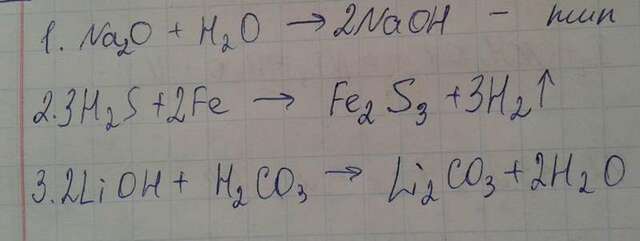 1. Na₂O + H₂O → 2NaOH - тип
2. 3H₂S + 2Fe → Fe₂S₃ + 3H₂↑
3. 2LiOH + H₂CO₃ → Li₂CO₃ + 2H₂O